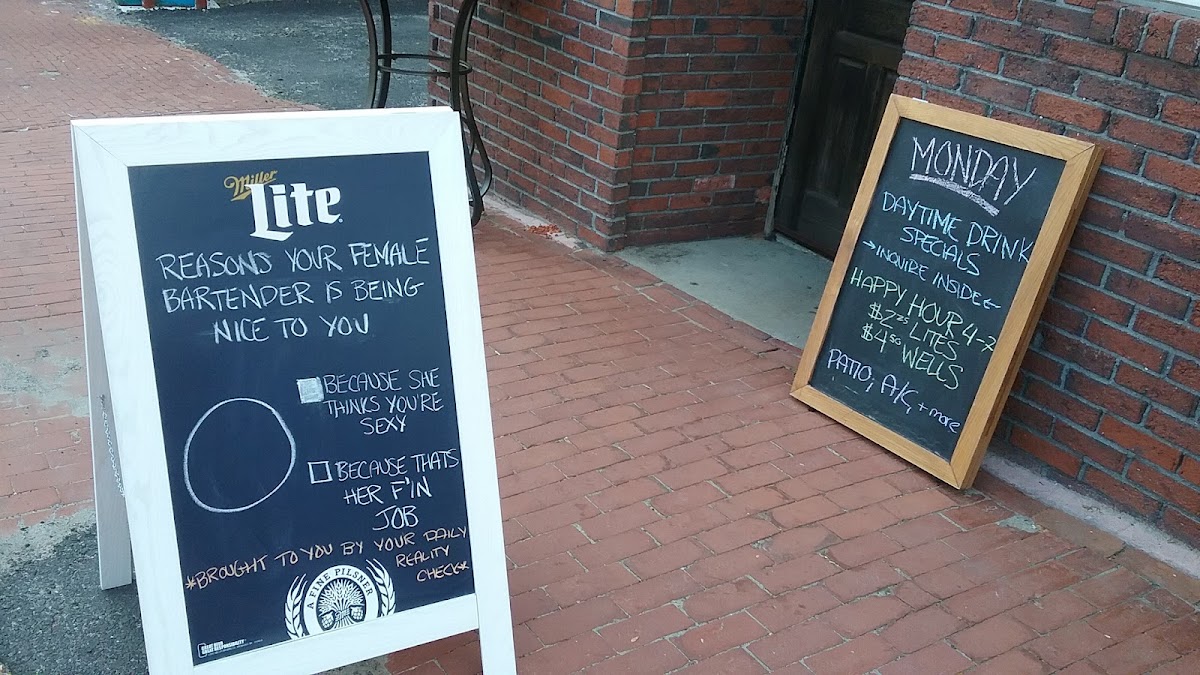 Miller
Lite
REASONS YOUR FEMALE
BARTENDER IS BEING
NICE TO YOU
BECAUSE SHE
THINKS YOU'RE
SEXY
BECAUSE THATS
HER F'IN
JOB
*BROUGHT TO YOU BY YOUR DAILY
REALITY
CHECK*
A FINE PILSNER
MONDAY
DAYTIME DRINK
SPECIALS
→INQUIRE INSIDE←
HAPPY HOUR 4-7
$2.25 LITES
$4.50 WELLS
PATIO, A/C, + more